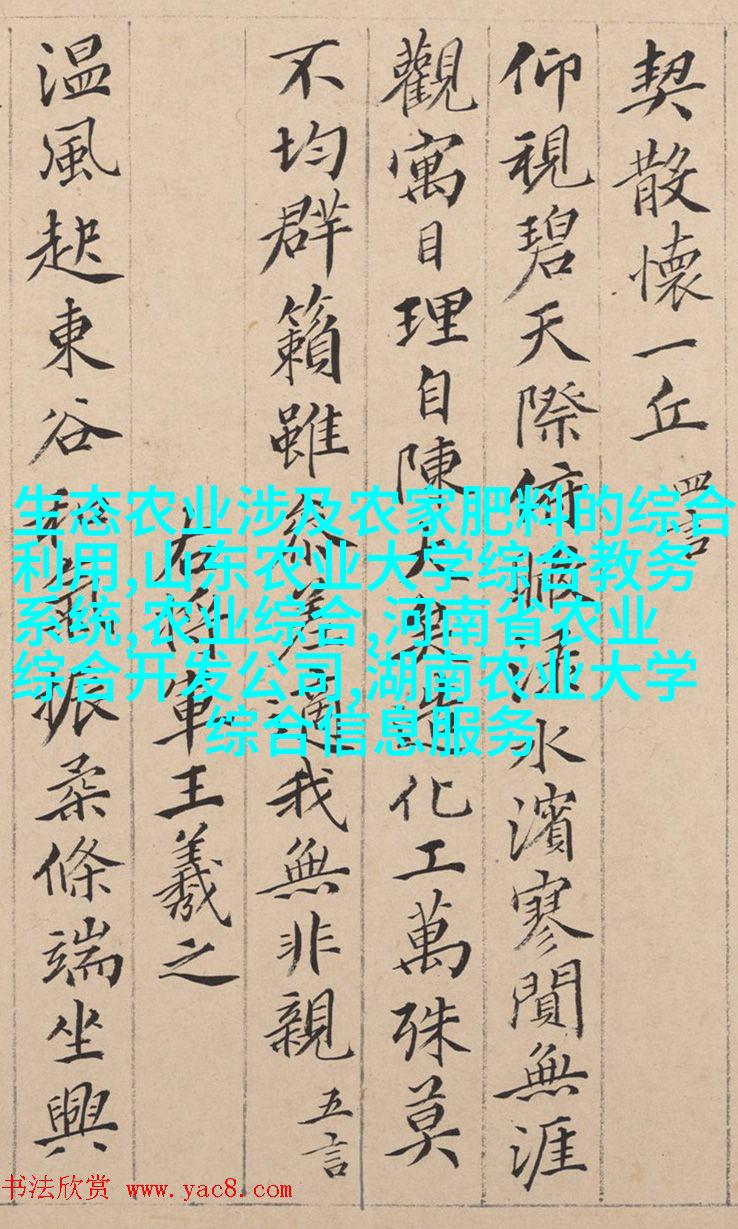 契散懷一丘 四言
仰視碧天際俯瞰淥水濱寥閴無涯
觀寓目理自陳大矣造化工萬殊莫
不均群籟雖參差適我無非親 五言
右將軍王羲之
温風起東谷和氣振柔條端坐興
生态农业涉及农家肥料的综合
利用,山东农业大学综合教务
系统,农业综合,河南省农业
综合开发公司,湖南农业大学
综合信息服务
书法欣赏 www.yac8.com